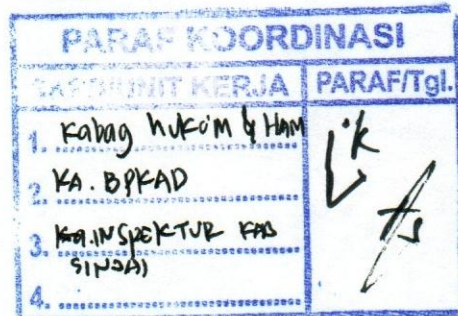 PARAF KOORDINASI
UNIT KERJA PARAF/Tgl.
1. Kabag hukum & HAM
2. KA. BPKAD
3. INSPEKTUR KAB
SINJAI
4.